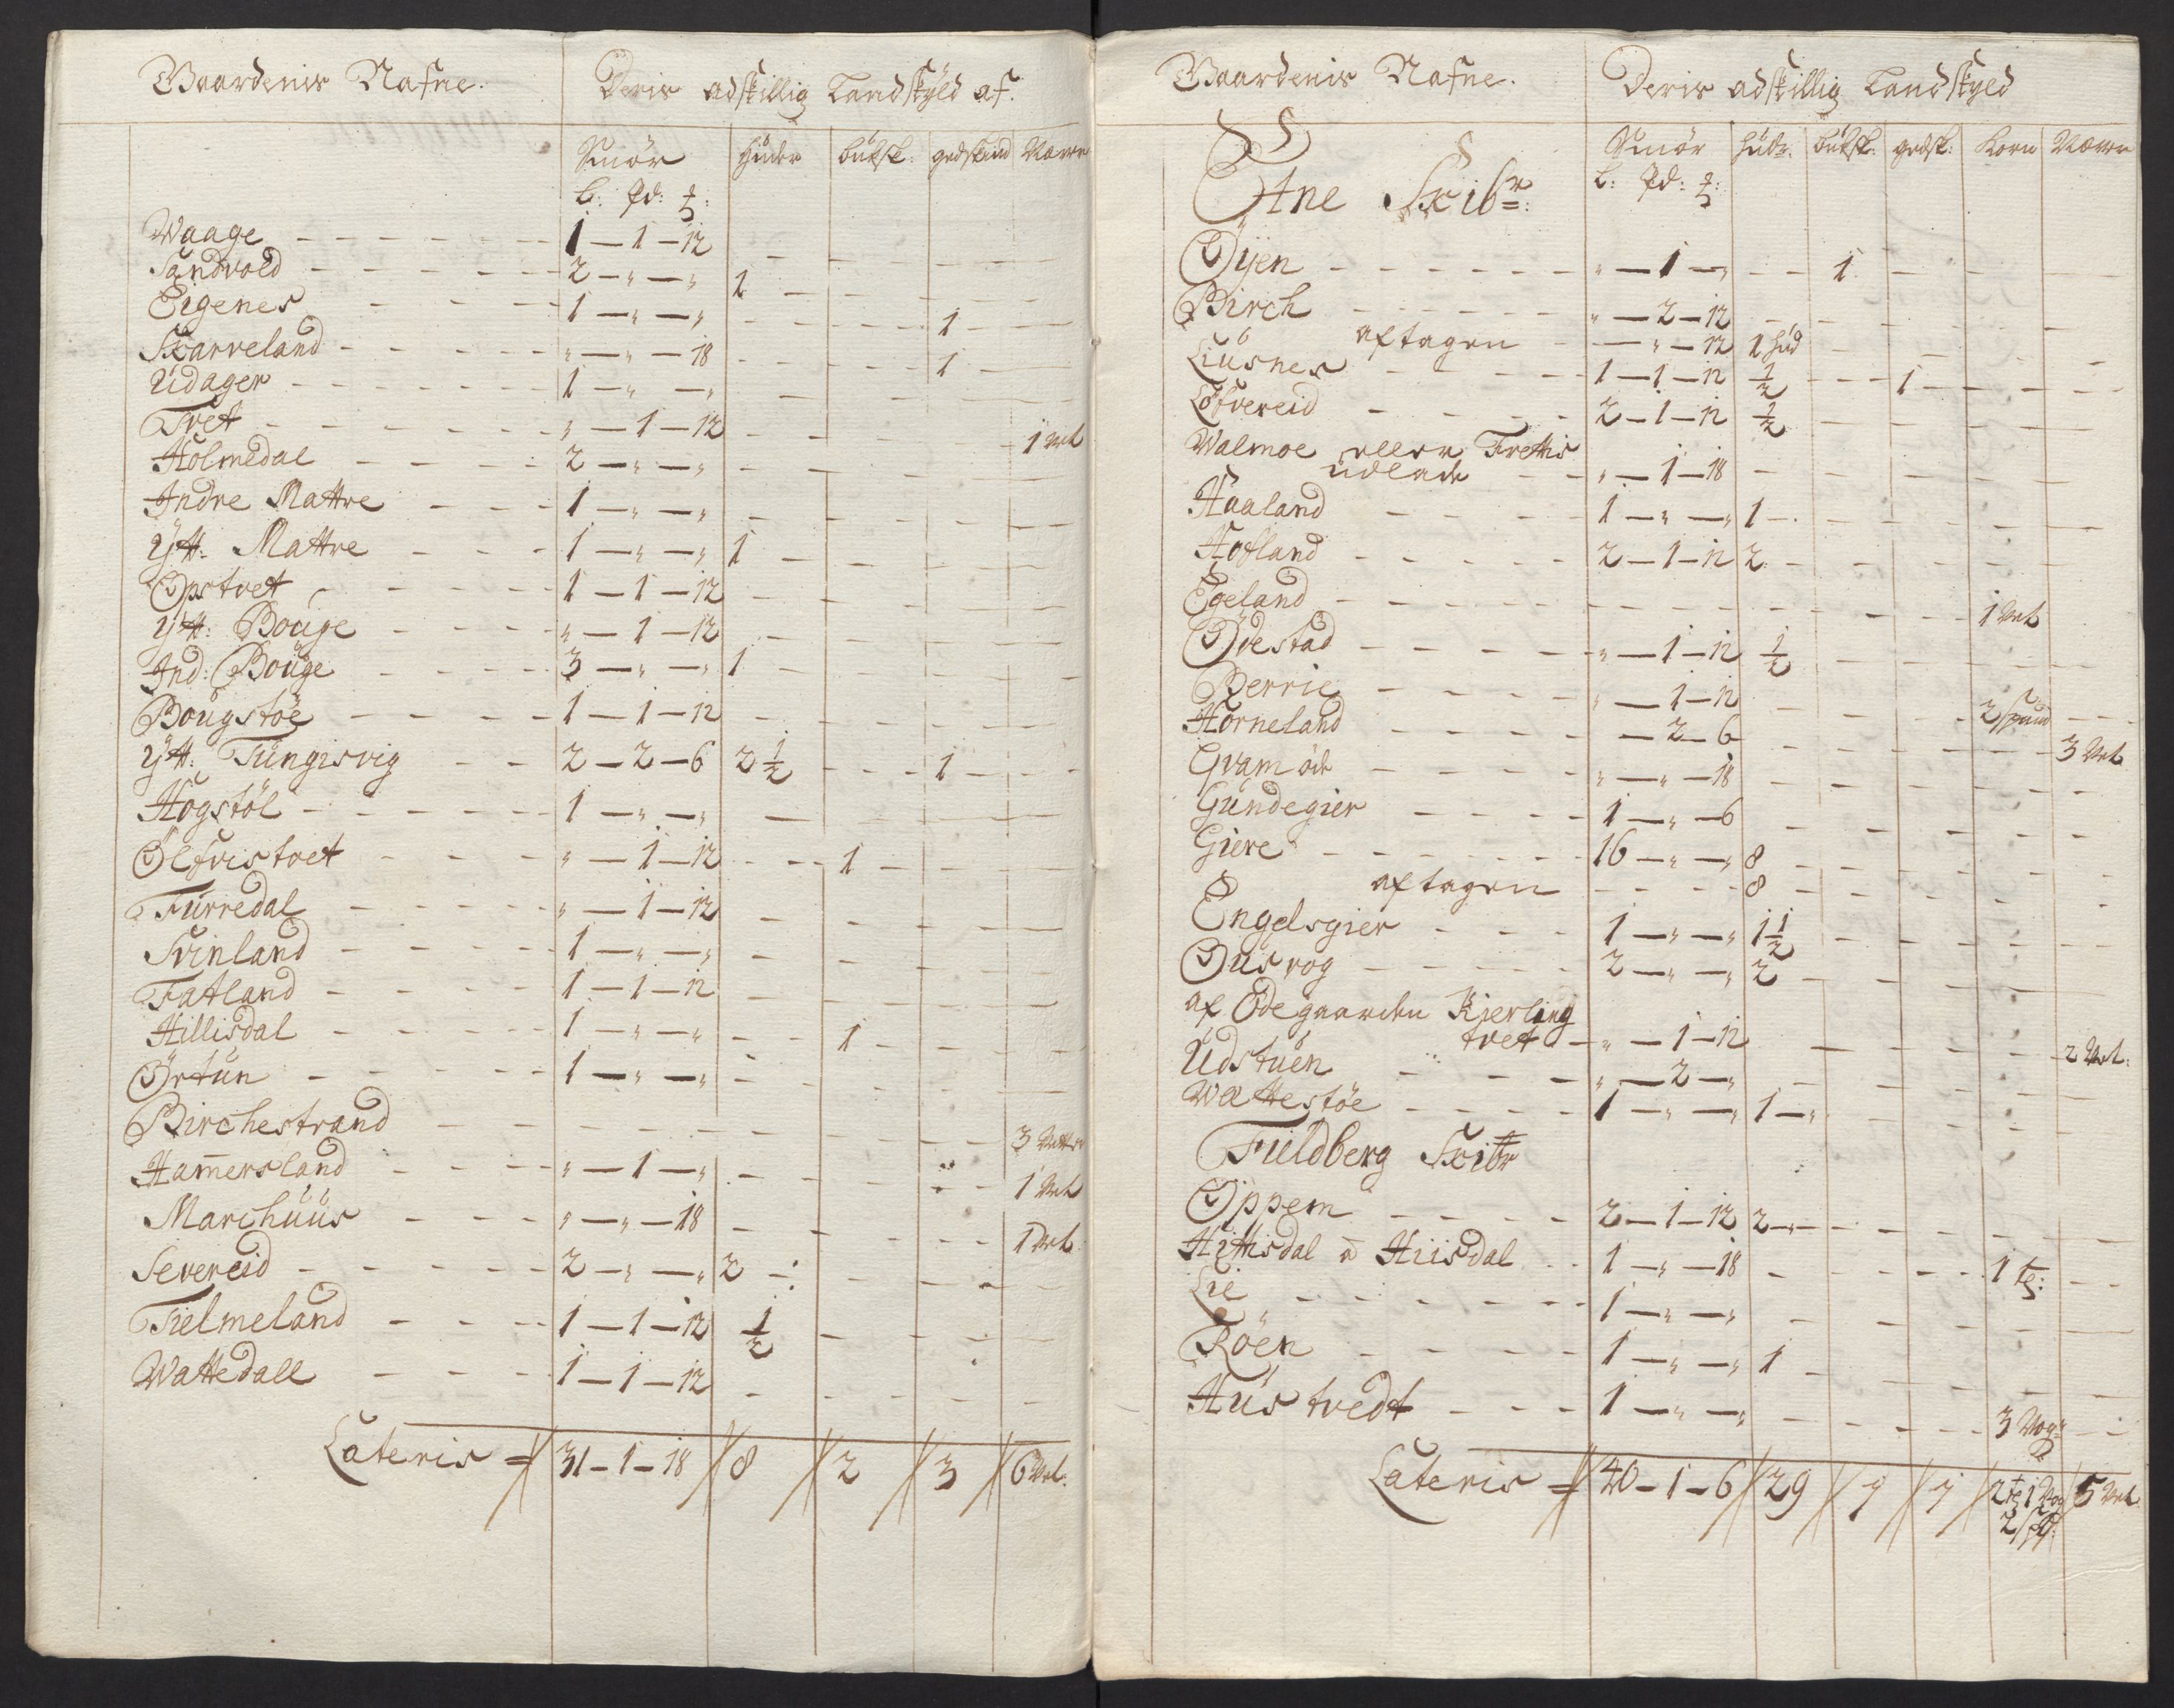 Gaardenis Nafne. Deris adskillig Landskyld af.
Smör Huder buksk: gedskind Næver
L: Pd: ℔:
Waage 1 — 1 — 12
Sandvold 2 — „ — „ 1
Eigenes 1 — „ — „ 1
Skarveland „ — „ — 18 1
Udager 1 — „ — „
Tvet „ — 1 — 12 1 Vet
Holmedal 2 — „ — „
Indre Mattre 1 — „ — „
Ytt: Mattre 1 — „ — „ 1
Opstvet 1 — 1 — 12
Ytt: Bouge „ — 1 — 12
Ind: Bouge 3 — „ — „ 1
Bougstöe 1 — 1 — 12
Ytt: Tungisvig 2 — 2 — 6 2½ 1
Hogstöl 1 — „ — „
Ölfvistvet „ — 1 — 12 1
Furredal „ — 1 — 12
Svinland 1 — „ — „
Fatland 1 — 1 — 12
Hillisdal 1 — „ — „ 1
Örtun 1 — „ — „
Birchestrand 3 Vetter
Ham̄ersland „ — 1 — „ 1 Vet
Marchuus „ — „ — 18 1 Vet.
Severeid 2 — „ — „ 2
Tielmeland 1 — 1 — 12 ½
Wattedall 1 — 1 — 12
Lateris = 31 — 1 — 18 8 2 3 6 Vet:
Gaardenis Nafne. Deris adskillig Landskyld
Smör Hud: buksk: gedsk: Korn Næver
L: Pd: ℔:
Etne Skibr:
Öyen „ — 1 — „ 1
Birch „ — 2 — 12
aftagen — „ — 12 1 hud
Liusnes 1 — 1 — 12 ½ 1
Löfvereid 2 — 1 — 12 ½
Walmoe eller Frettis
udlade „ — 1 — 18
Haaland 1 — „ — „ 1
Hofland 2 — 1 — 12 2
Egeland 1 Vet
Ödestad „ — 1 — 12 ½
Berrie „ — 1 — 12 2 Spund
Horneland — 2 — 6 3 Vet
Gvam öde „ — „ — 18
Gundegier 1 — „ — 6
Giere 16 — „ — „ 8
aftagen 8
Engelsgier 1 — „ — „ 1½
Ousvog 2 — „ — „ 2
af Ödegaarden Kierling
tvet „ — 1 — 12 2 Vet:
Udstuen „ — 2 — „
Wattestöe 1 — „ — „ 1 — „
Fieldberg Skibr
Oppem 2 — 1 — 12 2
Hittisdal a Hiisdal 1 — „ — 18 1 tj:
Lie 1 — „ — „
Röen 1 — „ — „ 1
Hustvedt 1 — „ — „ 3 Vog:
Lateris = 40 — 1 — 6 29 1 1 2 tj 1 Vog 5 Vet
2 Spd: